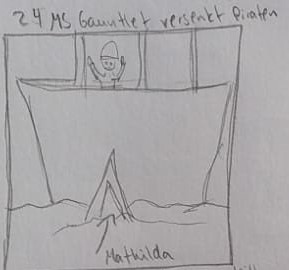 24 MS Gauntlet versenkt Piraten
Mathilda